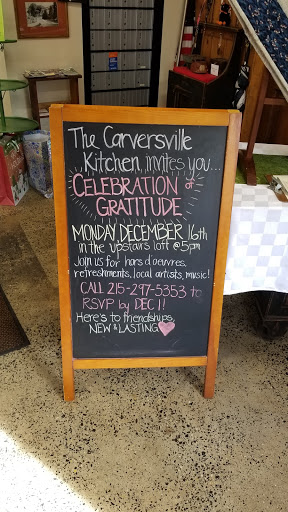 The Carversville
Kitchen invites you...
CELEBRATION of
GRATITUDE
MONDAY, DECEMBER 16th
in the upstairs loft @5pm
Join us for hors d'oeuvres,
refreshments, local artists, music!
CALL 215-297-5353 to
RSVP by DEC 1!
Here's to friendships,
NEW & LASTING